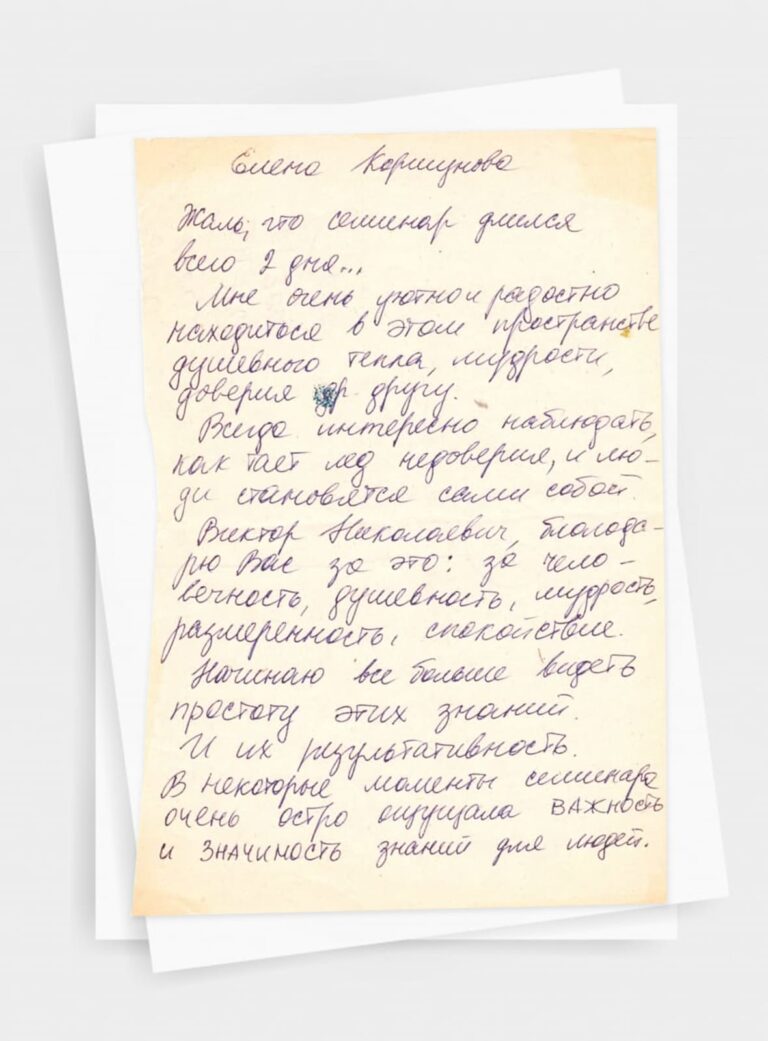 Елена Коршунова
Жаль, что семинар длился
всего 2 дня...
Мне очень уютно и радостно
находиться в этом пространстве
душевного тепла, мудрости,
доверия др другу.
Всегда интересно наблюдать,
как тает лед недоверия, и лю-
ди становятся сами собой.
Виктор Николаевич, благода-
рю Вас за это: за чело-
вечность, душевность, мудрость,
размеренность, спокойствие.
Начинаю все больше видеть
простоту этих знаний.
И их результативность.
В некоторые моменты семинара
очень остро ощущала ВАЖНОСТЬ
и ЗНАЧИМОСТЬ знаний для людей.